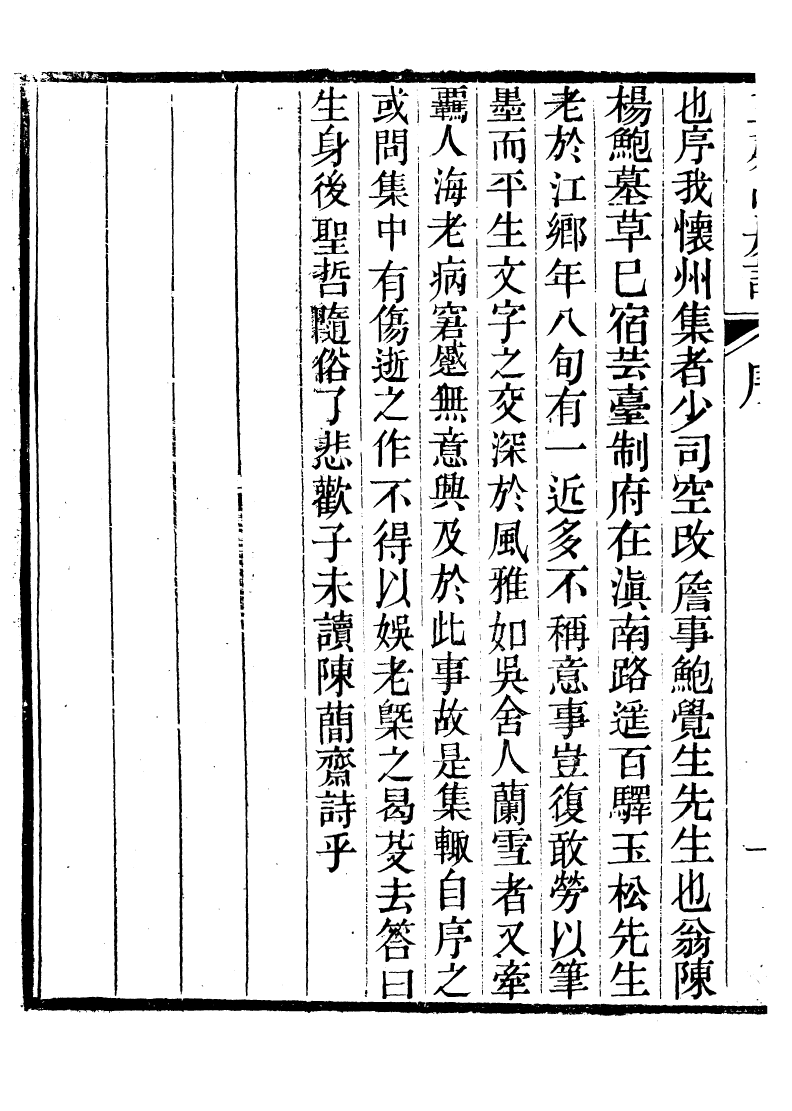 序
一
也序我懷州集者少司空改詹事鮑覺生先生也翁陳
楊鮑墓草已宿芸臺制府在滇南路遥百驛玉松先生
老於江鄉年八旬有一近多不稱意事豈復敢勞以筆
墨而平生文字之交深於風雅如吳舍人蘭雪者又牽
羈人海老病窘慼無意興及於此事故是集輙自序之
或問集中有傷逝之作不得以娛老槩之曷芟去答曰
生身後聖哲隨俗了悲歡子未讀陳蕳齋詩乎